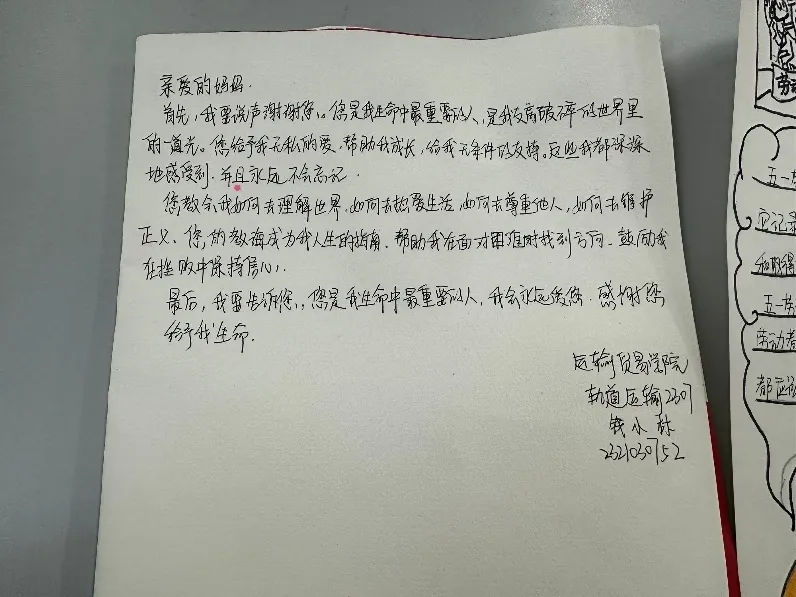 亲爱的妈妈.
首先，我要说声谢谢您，您是我生命中最重要的人，是我支离破碎的世界里
的一道光。您给予我无私的爱，帮助我成长，给我无条件的支持。这些我都深深
地感受到，并且永远不会忘记.
您教会我如何去理解世界，如何去热爱生活，如何去尊重他人，如何去维护
正义、您的教诲成为我人生的指南、帮助我在面对困难时找到方向、鼓励我
在挫败中保持信心，
最后，我要告诉您，您是我生命中最重要的人，我会永远爱您.感谢您
给予我生命.
运输贸易学院
轨道运输2307
钱小林
2321030752
劳
五一劳
应记录
和的得
五一劳
劳动者
都应该